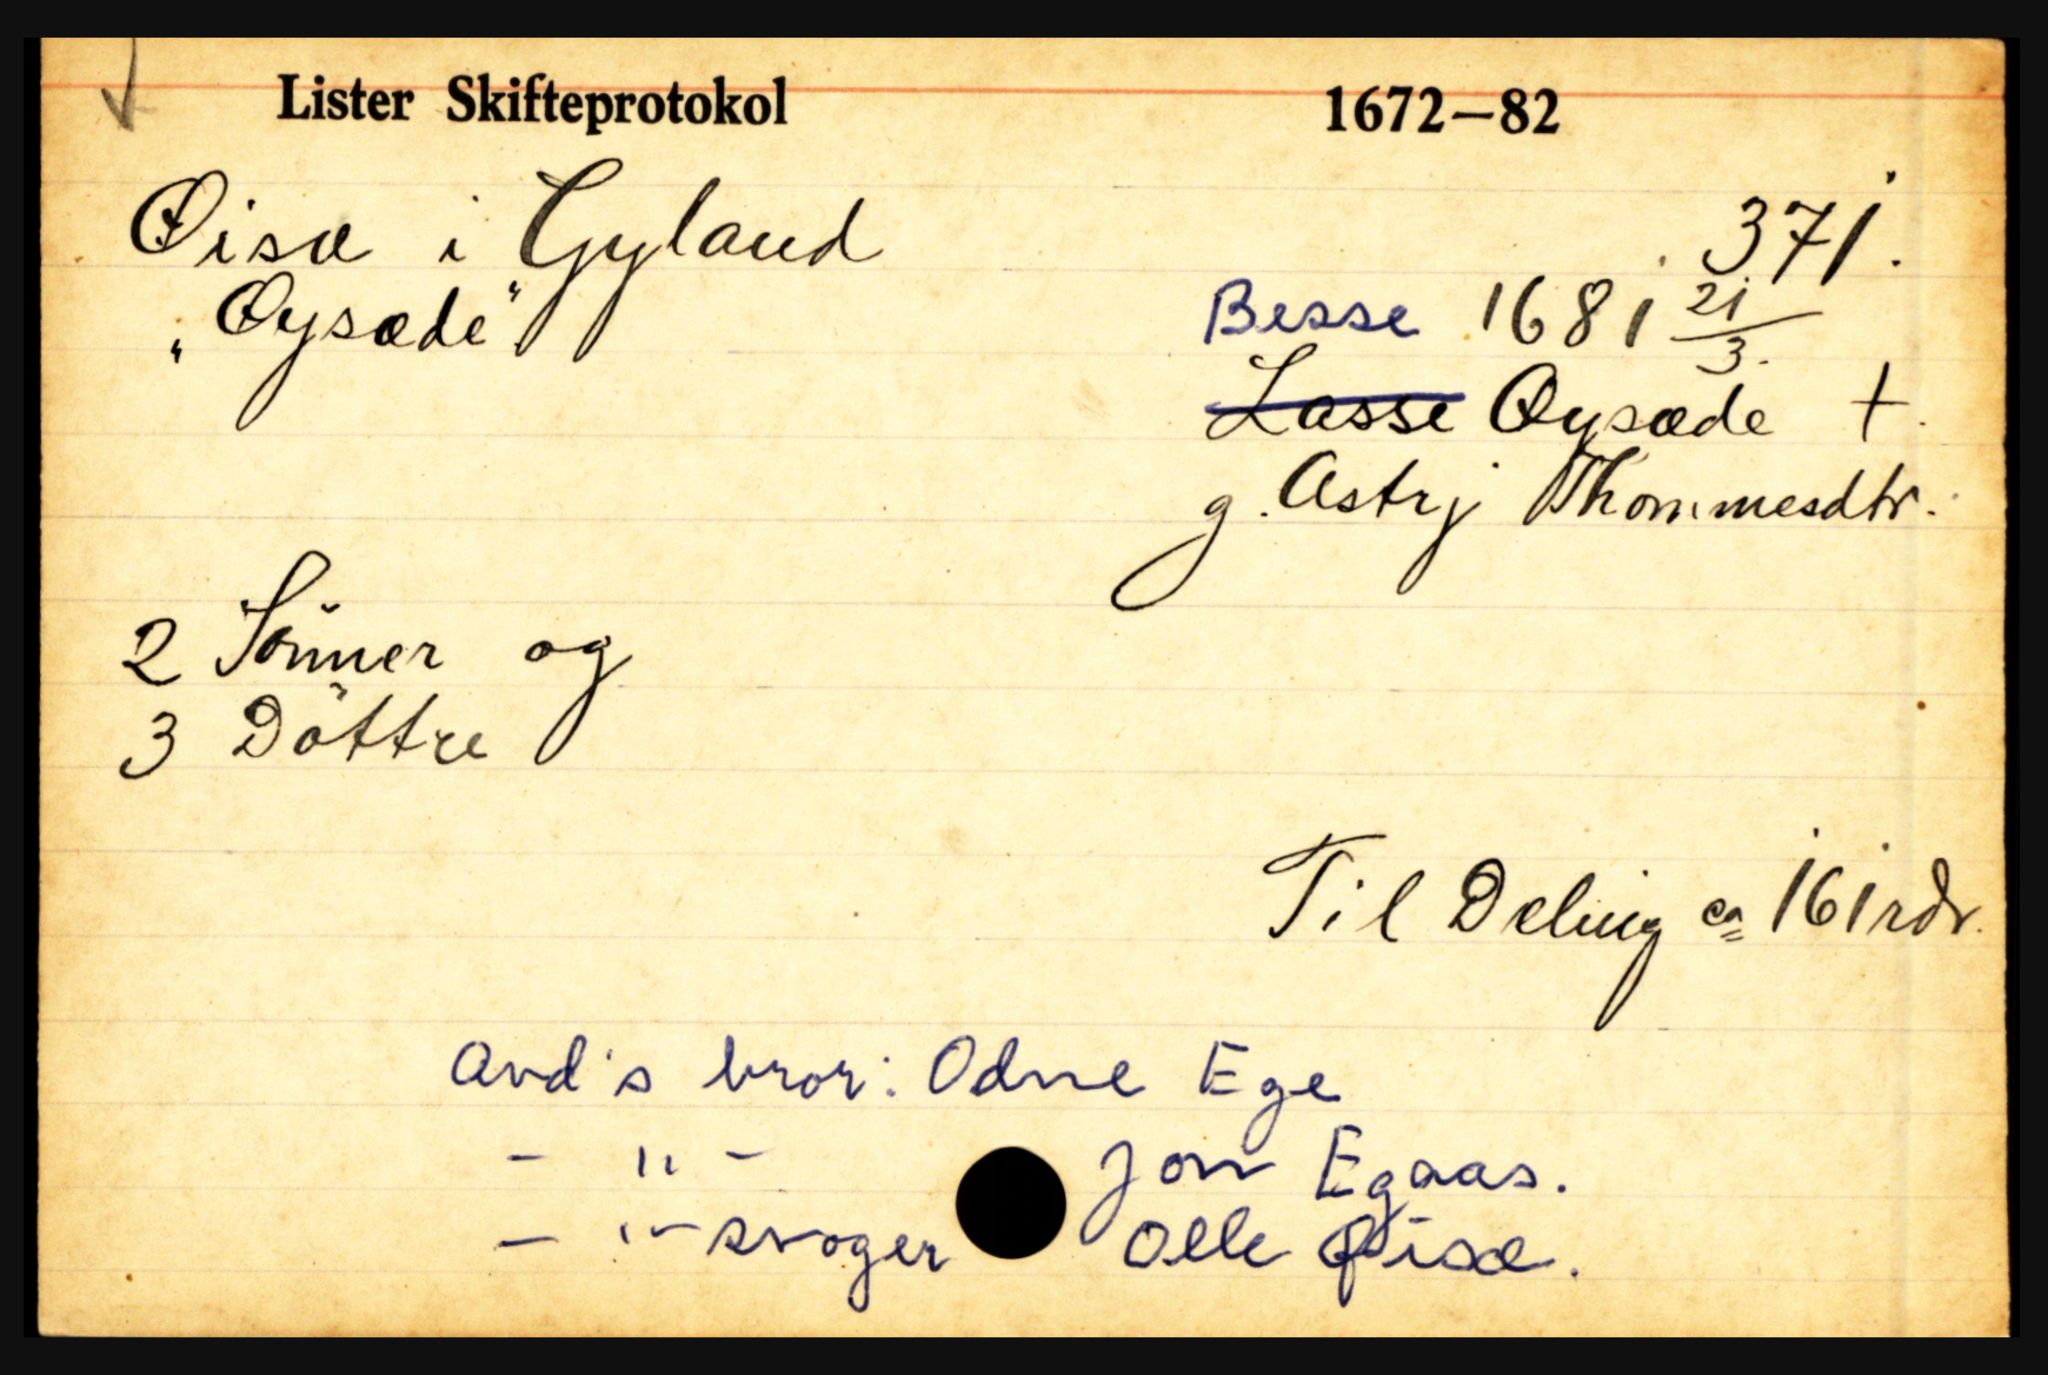 Lister Skifteprotokol 1672–82
Øisæ i Gyland
371.
„Øysæde"
Besse 1681 21/3.
Lasse Øysæde †.
g. Astrj Thommesdtr.
2 Sönner og
3 Döttre
Til Deling ca 161 rdr.
Avd's bror: Odne Ege
– " – Jon Egaas.
– " – svoger Olle Øisæ.